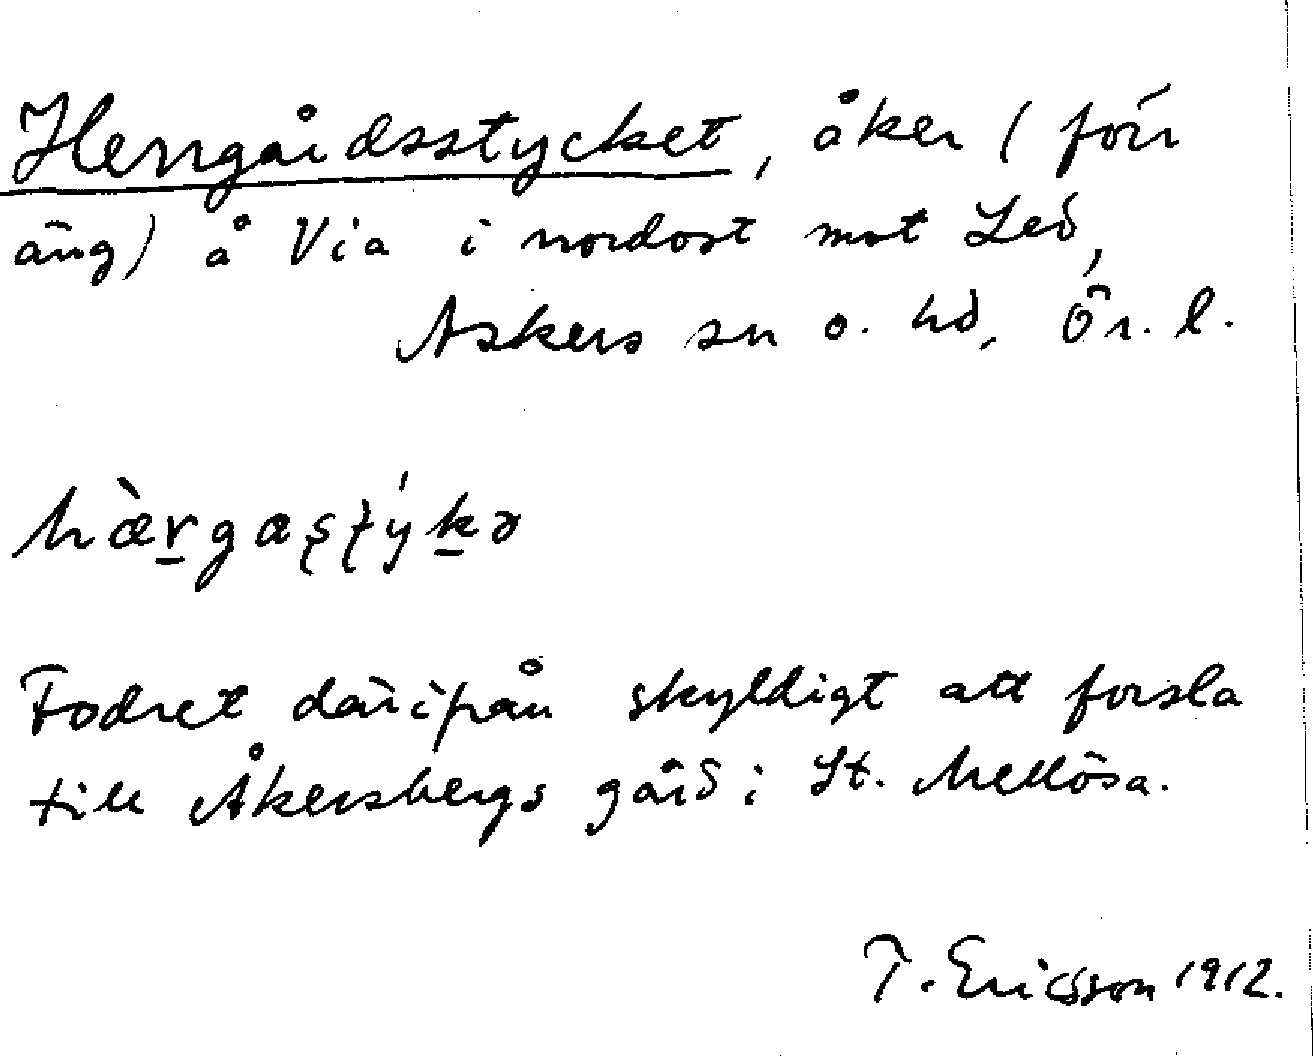 Herrgårdsstycket, åker (förr
äng) å Via i nordost mot Led,
Askers sn o. hd, Ör. l.
hæ̀r̠gaʂʈýk̠ə
Fodret därifrån skyldigt att forsla
till Åkersbergs gård i St. Mellösa.
T. Ericsson 1912.